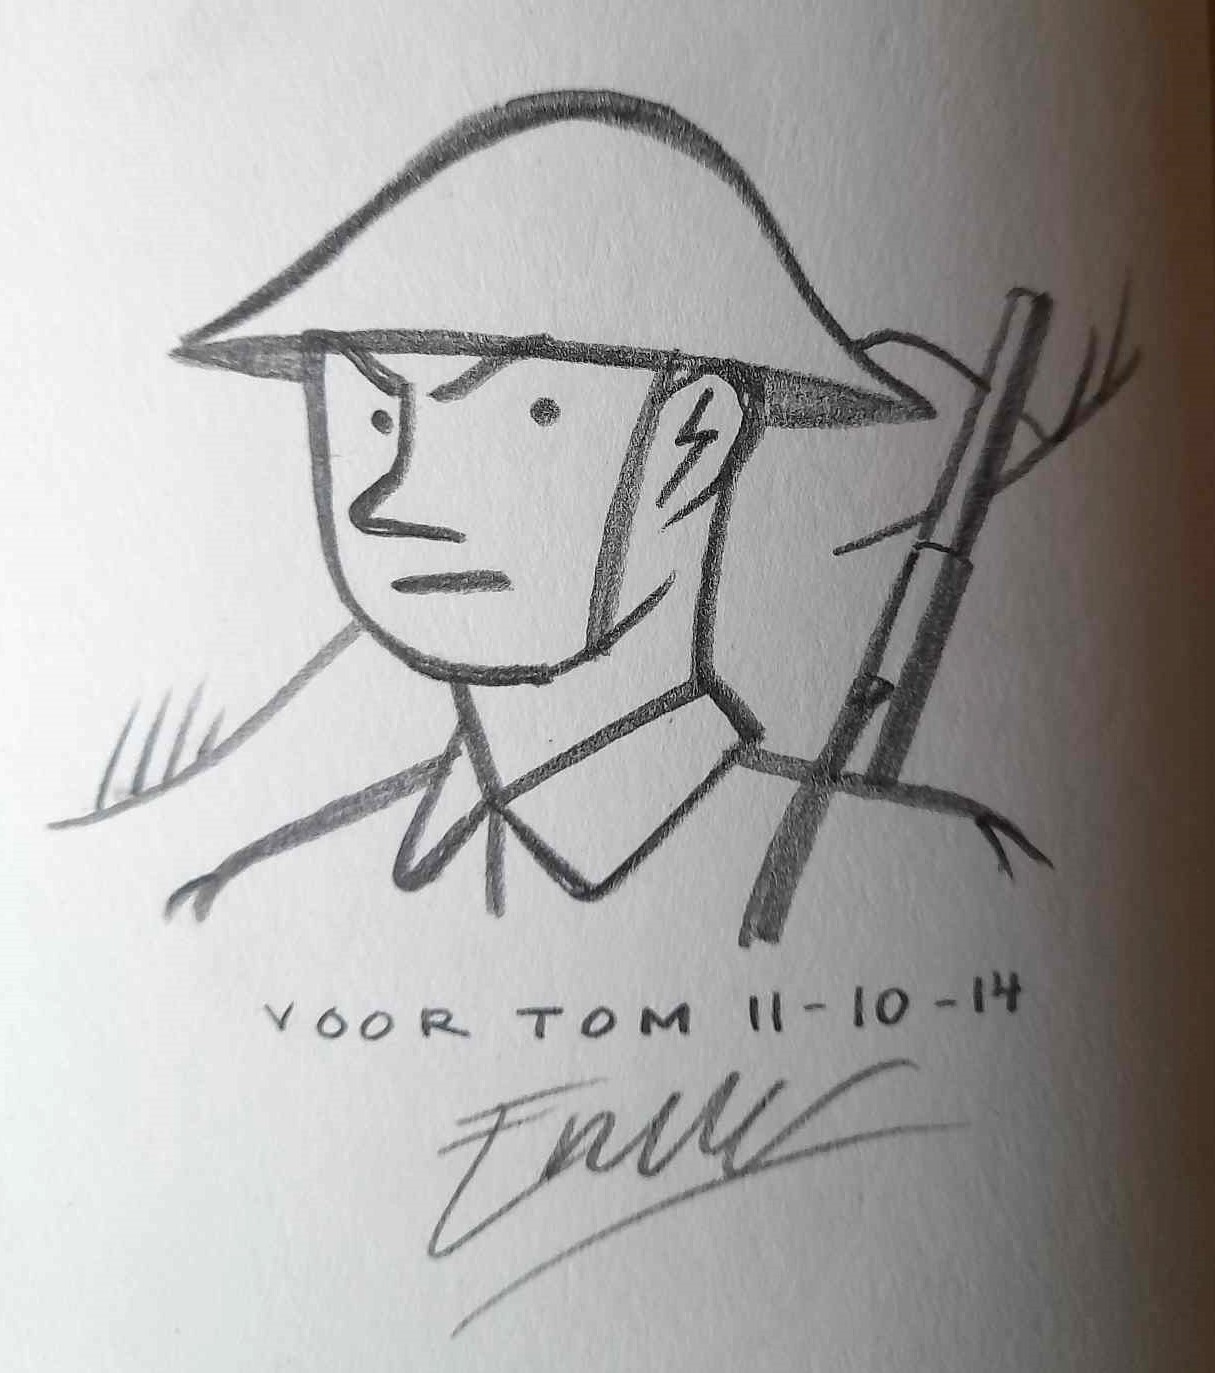 VOOR TOM 11-10-14